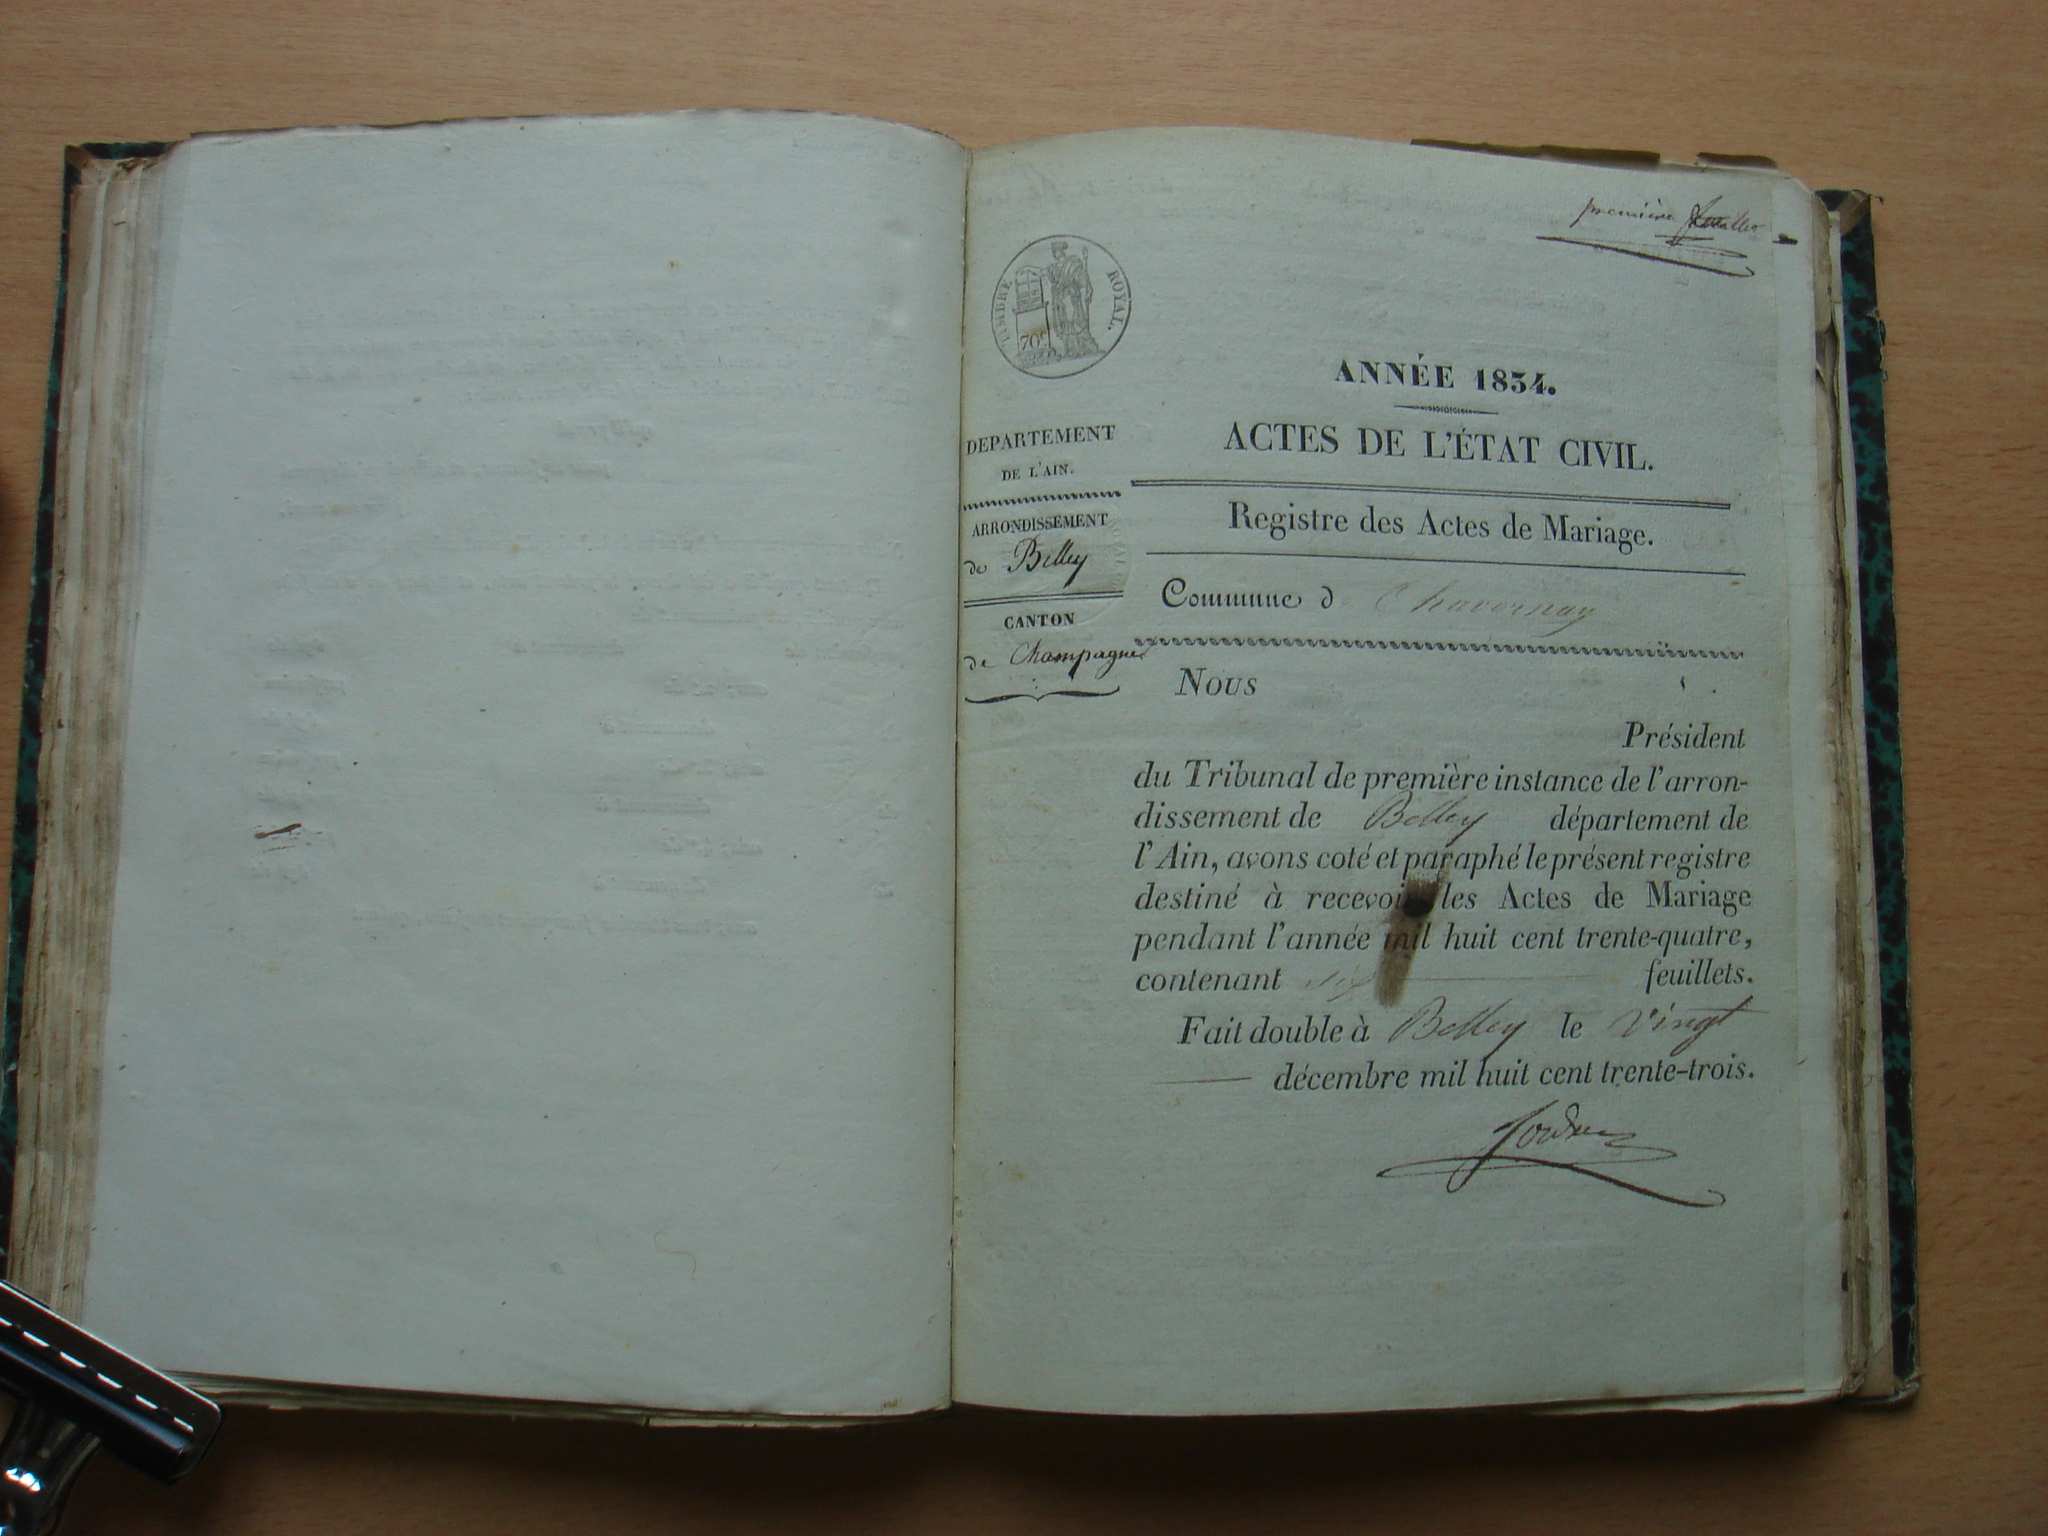 première feuillet
TIMBRE ROYAL.
70c
ANNÉE 1834.
ACTES DE L'ÉTAT CIVIL.
Registre des Actes de Mariage.
DEPARTEMENT
DE L'AIN.
ARRONDISSEMENT
de Belley
CANTON
de Champagne
Commune d Chavornay
Nous
Président
du Tribunal de première instance de l'arron-
dissement de Belley département de
l'Ain, avons coté et paraphé le présent registre
destiné à recevoir les Actes de Mariage
pendant l'année mil huit cent trente-quatre,
contenant six feuillets.
Fait double à Belley le vingt
décembre mil huit cent trente-trois.